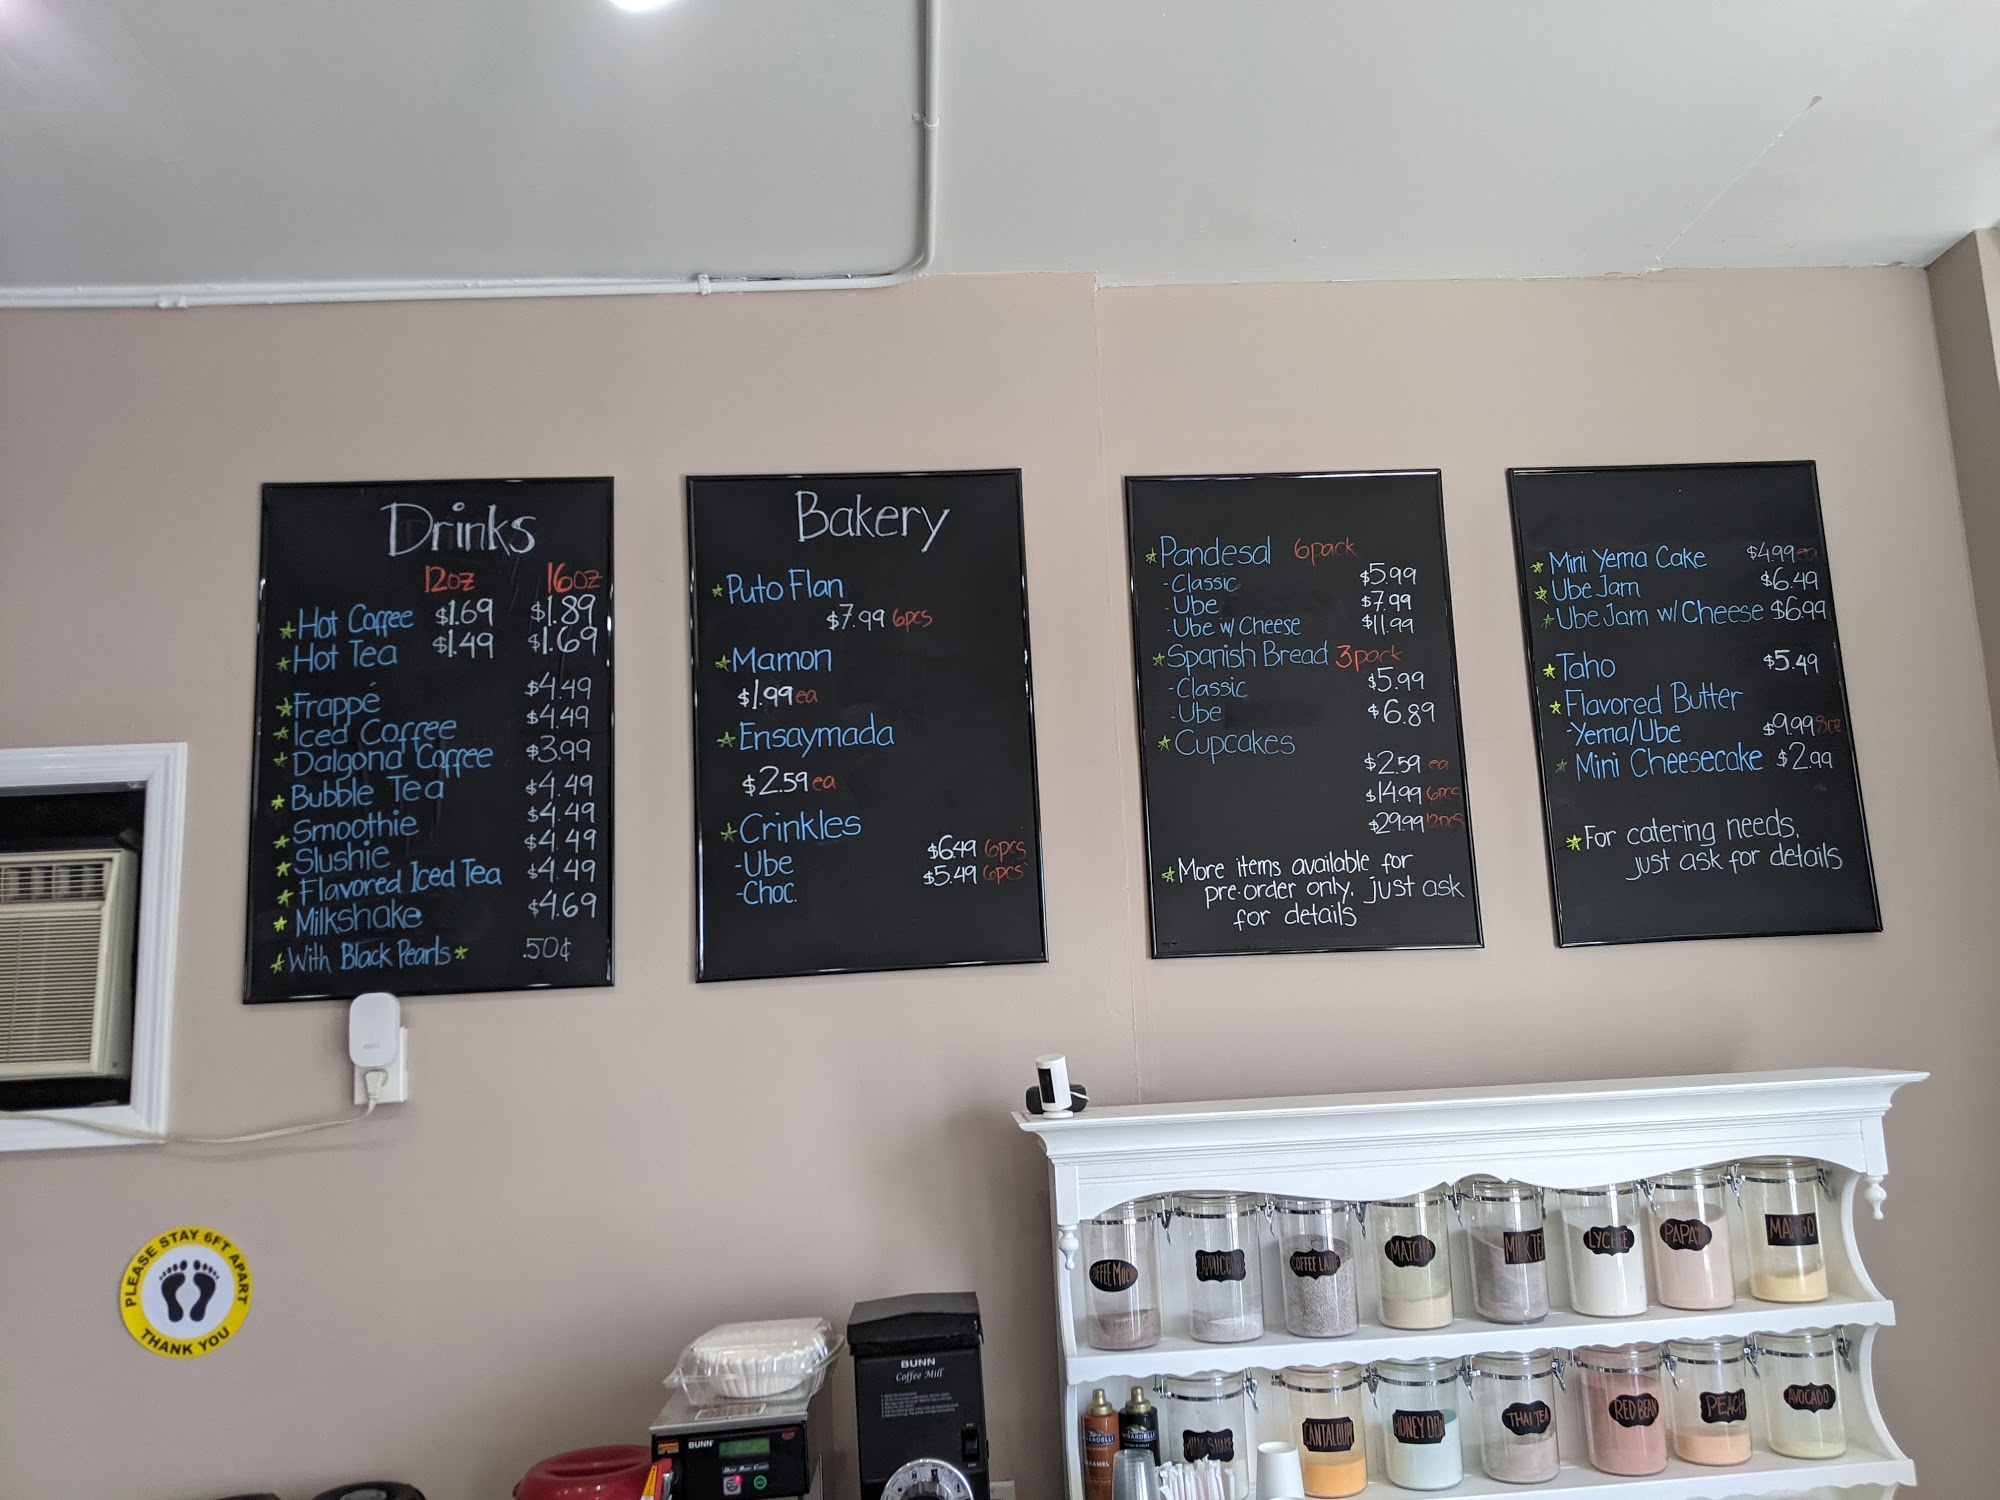 Drinks
12oz 16oz
Hot Coffee $1.69 $1.89
Hot Tea $1.49 $1.69
Frappé $4.49
Iced Coffee $4.49
Dalgona Coffee $3.99
Bubble Tea $4.49
Smoothie $4.49
Slushie $4.49
Flavored Iced Tea $4.49
Milkshake $4.69
With Black Pearls .50¢
Bakery
Puto Flan
$7.99 6pcs
Mamon
$1.99 ea
Ensaymada
$2.59 ea
Crinkles
-Ube $6.49 6pcs
-Choc. $5.49 6pcs
Pandesal 6pack
-Classic $5.99
-Ube $7.99
-Ube w/ Cheese $11.99
Spanish Bread 3pack
-Classic $5.99
-Ube $6.89
Cupcakes
$2.59 ea
$14.99 6pcs
$29.99 12pcs
More items available for
pre-order only, just ask
for details
Mini Yema Cake $4.99 ea
Ube Jam $6.49
Ube Jam w/ Cheese $6.99
Taho $5.49
Flavored Butter
-Yema/Ube $9.99 8oz
Mini Cheesecake $2.99
For catering needs,
just ask for details
PLEASE STAY 6FT APART
THANK YOU
BUNN
Coffee Mill
BUNN
COFFEE LATTE
MATCHA
MILK TEA
LYCHEE
PAPAYA
MANGO
CANTALOUPE
HONEY DEW
THAI TEA
RED BEAN
PEACH
AVOCADO